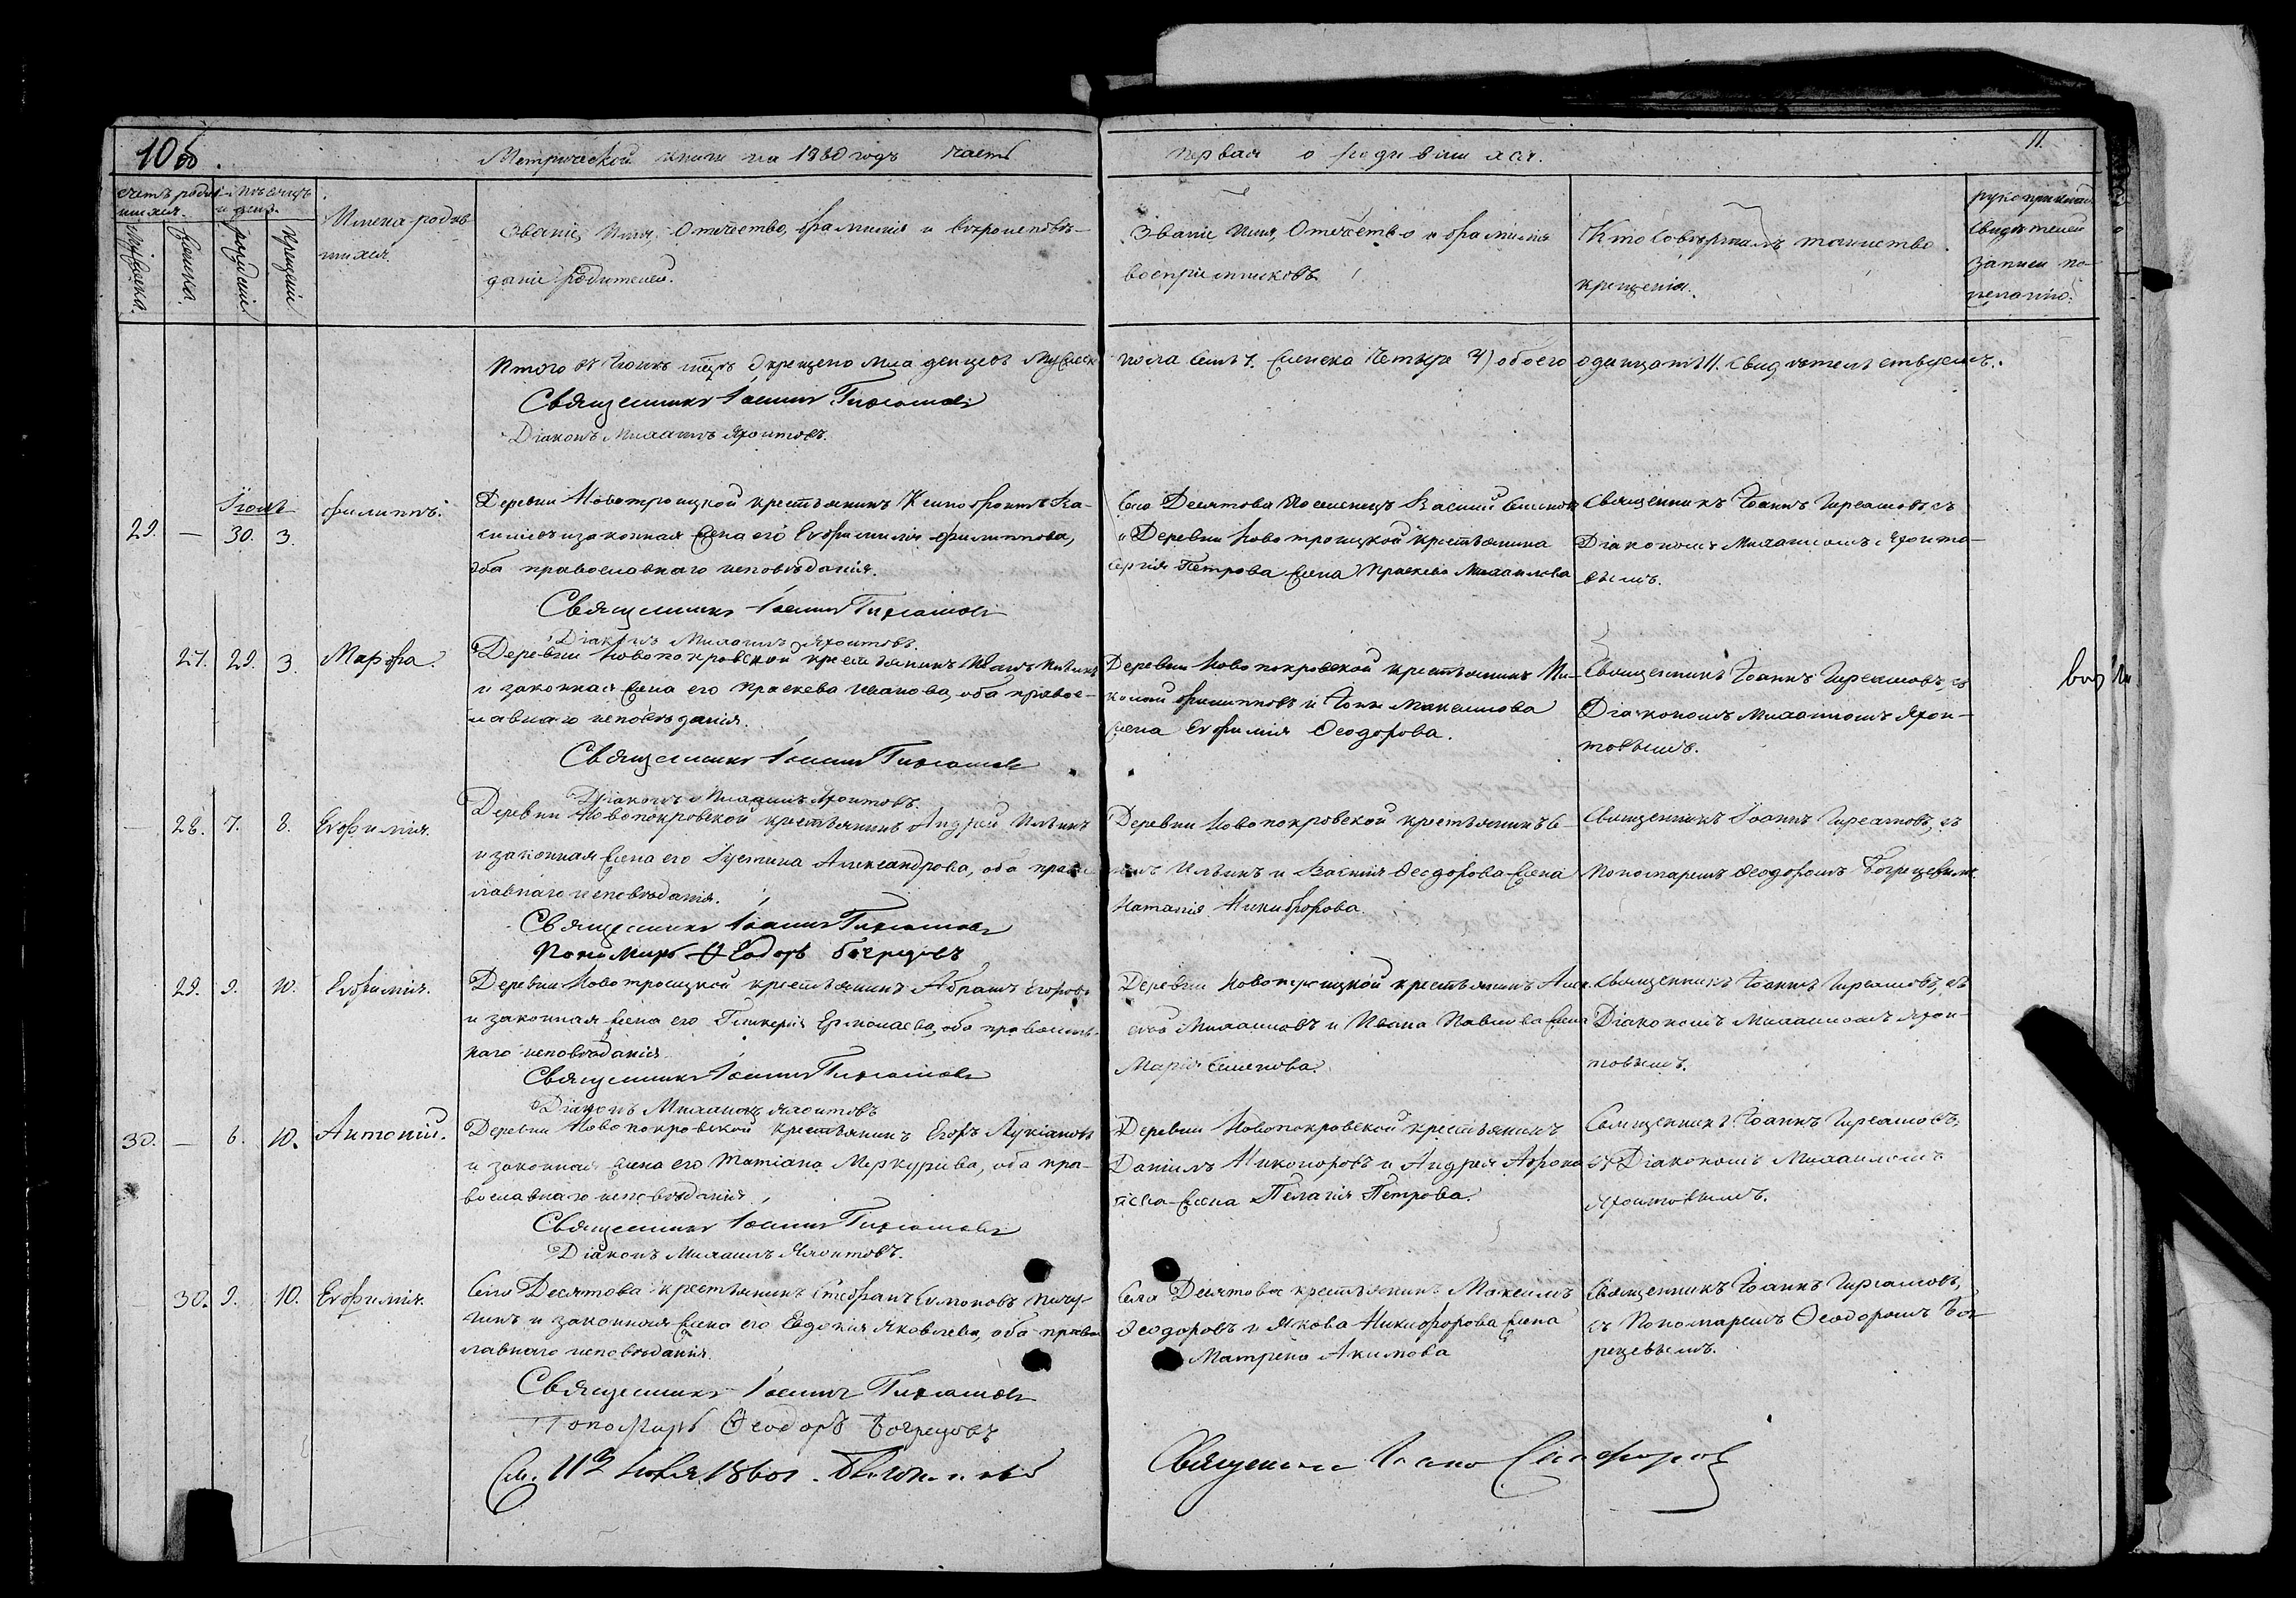 10 об.
Метрической книги на 1860 годъ часть
первая о родившихся.
11.
Счетъ родив-
шихся.
Мужеска.
Женска.
Мѣсяцъ
и день.
рожденія
крещенія
Имена родив
шихся.
Званіе, Имя, Отчество, фамилія и вѣроисповѣ-
даніе родителей.
Званіе Имя, Отчество и фамилія
воспріемниковъ
Кто совершалъ таинство
крещенія.
рукоприклад.
свидѣтелей
записи по
желанію.
Итого въ Іюнѣ м-цѣ окрещено младенцевъ мужеск
пола семь 7. женска четыре 4) обоего одинцать 11. свидѣтельствуемъ.
Священникъ Іоаннъ
Діаконъ Михаилъ Яхонтовъ.
29. — Іюль 30. 3. Филиппъ.
Деревни Новотроицкой крестьянинъ Ксенофонтъ Ва-
сильевъ и законная жена его Евфимия Филиппова,
оба православнаго исповѣданія.
Священникъ Іоаннъ
Діаконъ Михаилъ Яхонтовъ.
Села Десятова Василій
и Деревни Новотроицкой крестьянина
Сергія Петрова жена Праскева Михаилова
Священникъ Іоаннъ съ
Діакономъ Михаиломъ Яхонто-
вымъ.
27. 29. 3. Марфа.
Деревни Новопокровской крестьянинъ Иванъ Ильинъ
и законная жена его Праскева Иванова, оба правос-
лавнаго исповѣданія.
Священникъ Іоаннъ
Діаконъ Михаилъ Яхонтовъ.
Деревни Новопокровской крестьянинъ Ни-
колай Филипповъ и Максимова
жена Евфимія Ѳеодорова.
Священникъ Іоаннъ съ
Діакономъ Михаиломъ Яхон-
товымъ.
— 28. 7. 8. Евфимія.
Деревни Новопокровской крестьянинъ Андрей Ильинъ
и законная жена его Іустина Александрова, оба право
лавнаго исповѣданія.
Священникъ Іоаннъ
Пономарь Ѳеодоръ
Деревни Новопокровской крестьянинъ
Ильинъ и Василія Ѳеодорова жена
Наталія Никифорова.
Священникъ Іоаннъ съ
Пономаремъ Ѳеодоромъ
29. 9. 10. Евфимія.
Деревни Новотроицкой крестьянинъ Абрамъ Егоровъ
и законная жена его Гликерія Ермолаева, оба православ-
наго исповѣданія
Священникъ Іоаннъ
Діаконъ Михаилъ Яхонтовъ
Деревни Новотроицкой крестьянинъ Алек
сѣй Михаиловъ и Ивана Павлова жена
Марія Семенова.
Священникъ Іоаннъ съ
Діакономъ Михаиломъ Яхон-
товымъ.
30. — 6. 10. Антоній.
Деревни Новопокровской крестьянинъ Егоръ Лукіановъ
и законная жена его Татіана Меркуріева, оба пра-
вославнаго исповѣданія
Священникъ Іоаннъ
Діаконъ Михаилъ Яхонтовъ.
Деревни Новопокровской крестьянинъ
Даніилъ Никоноровъ и Андрея Афона
сіева жена Пелагія Петрова.
Священникъ Іоаннъ
съ Діакономъ Михаиломъ
Яхонтовымъ.
30. 9. 10. Евфимія.
Села Десятова крестьянинъ Стефанъ
и законная жена его Евдокія Яковлева, оба право
лавнаго исповѣданія.
Священникъ Іоаннъ
Пономарь Ѳеодоръ
Села Десятова крестьянинъ Максимъ
Ѳеодоровъ и Якова Никифорова жена
Матрена Акимова
Священникъ Іоаннъ
съ Пономаремъ Ѳеодоромъ
1860
Священникъ